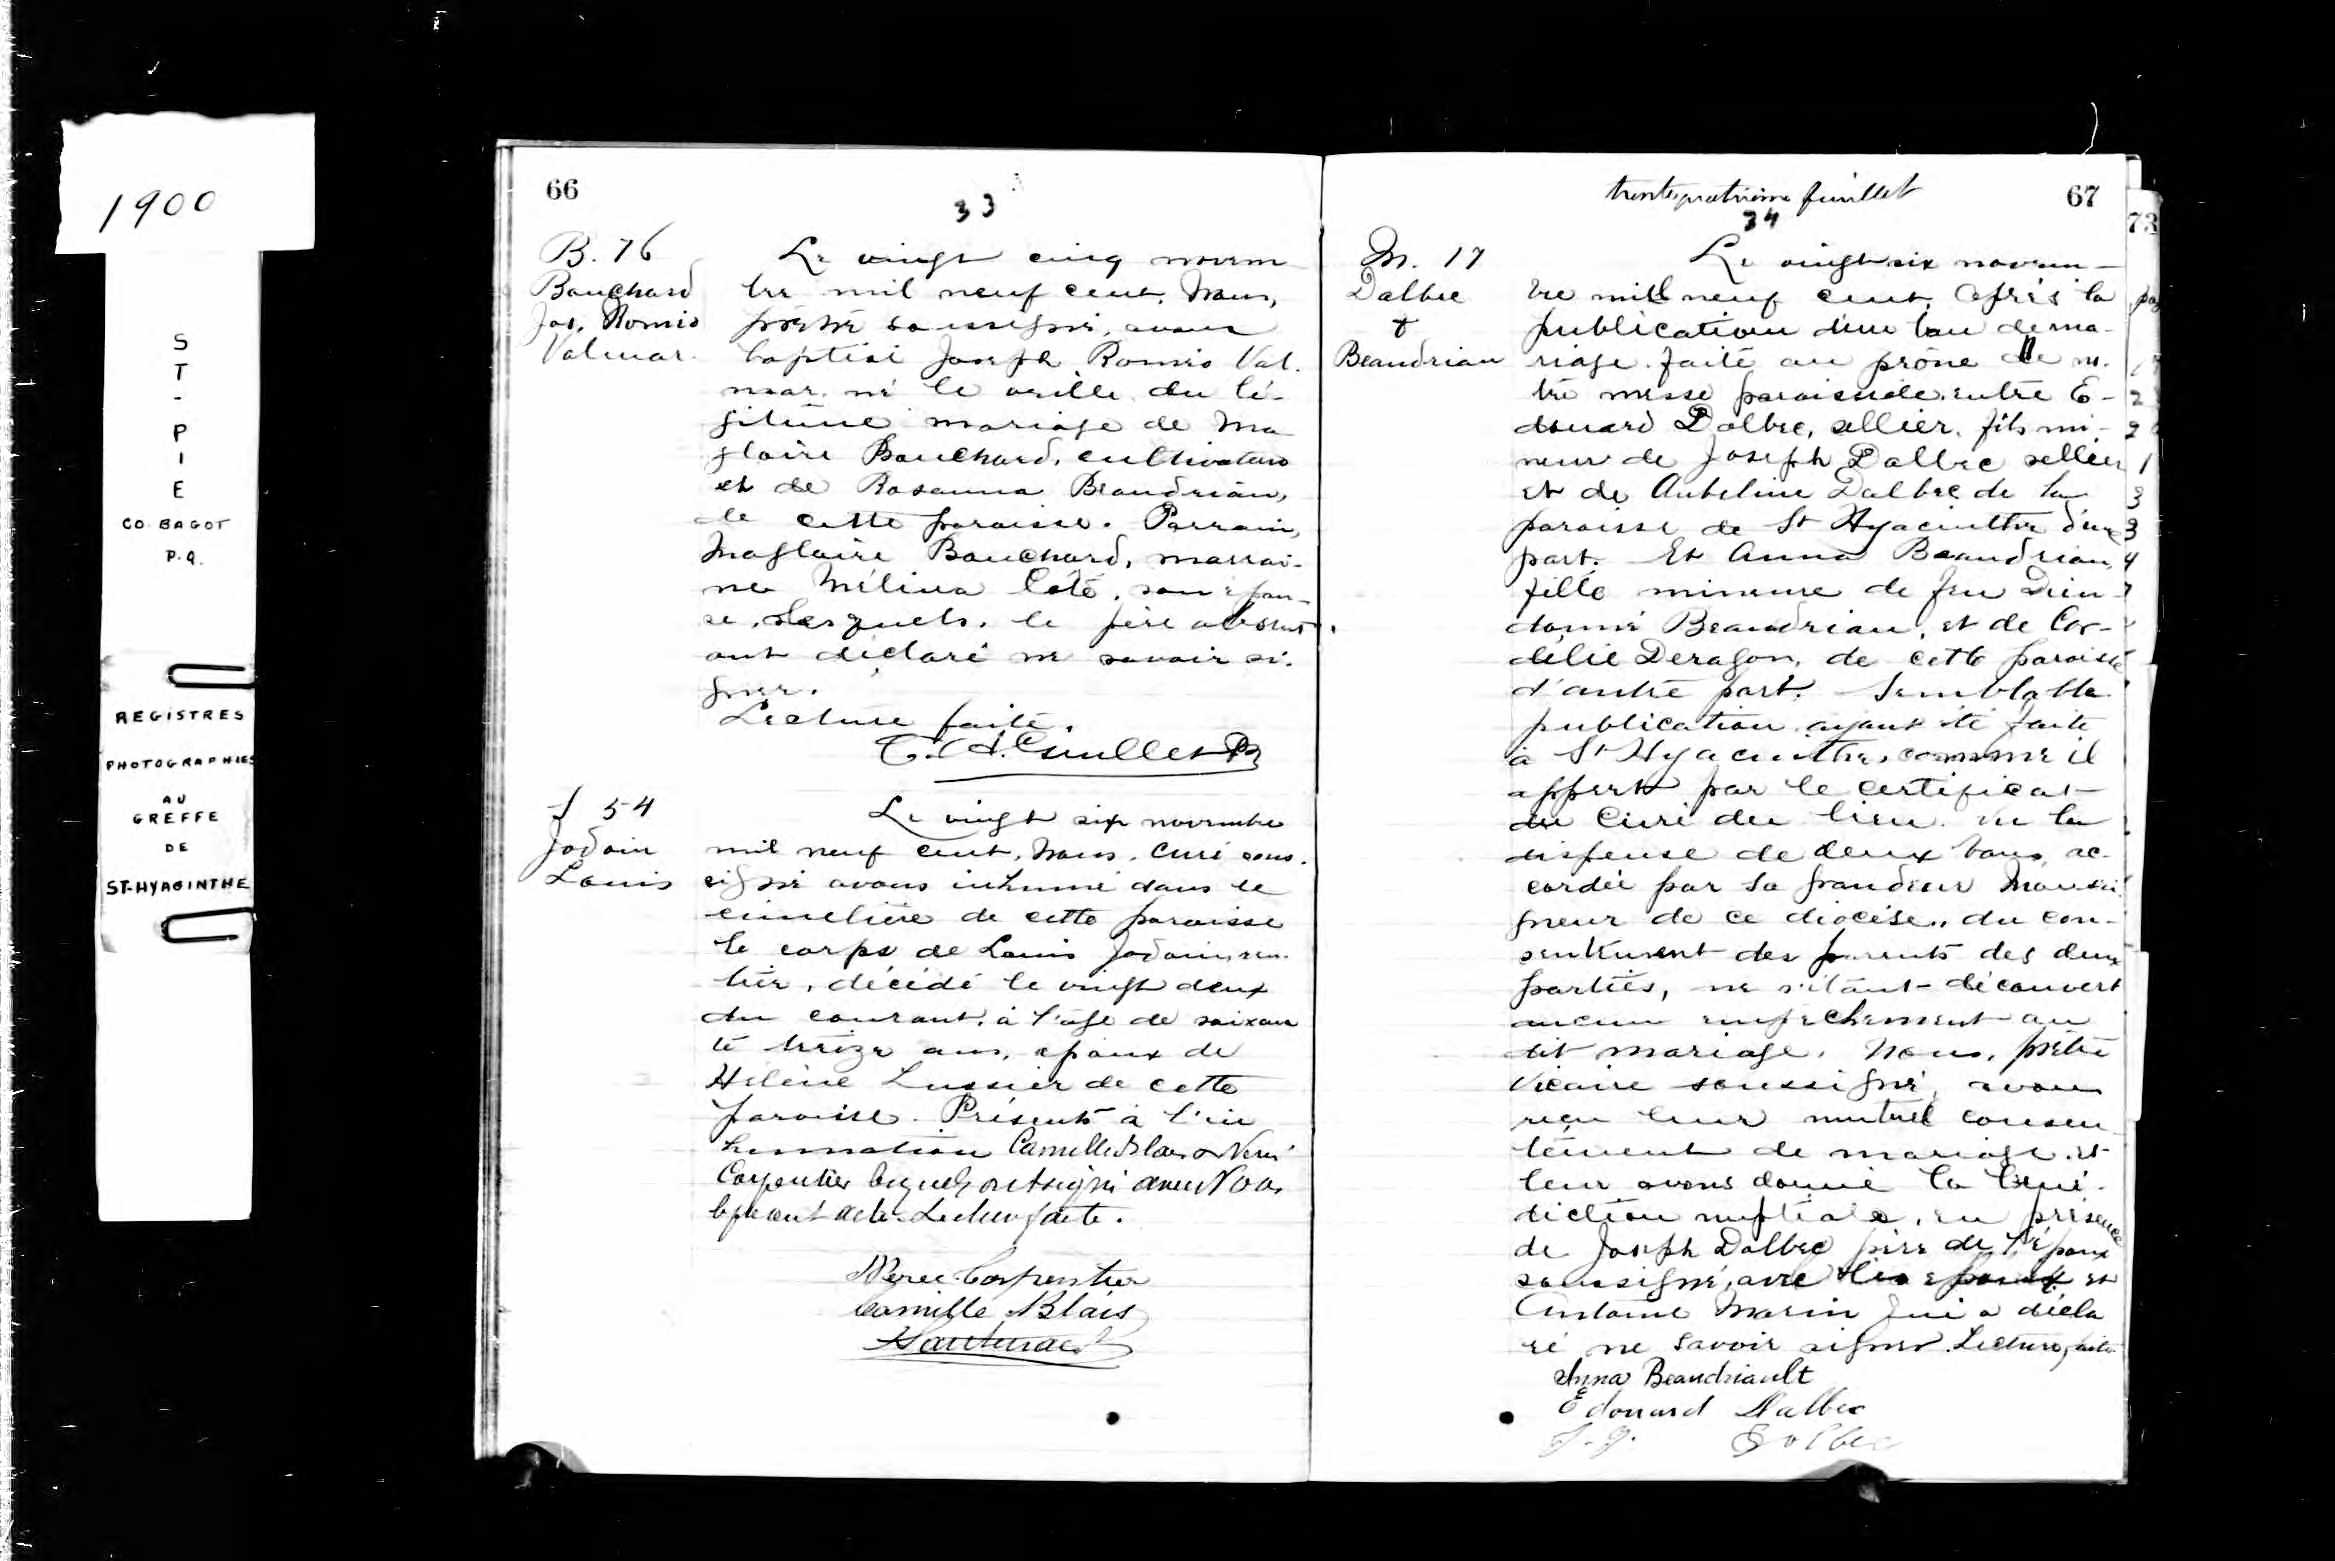 1900
S
T
-
P
I
E
CO. BAGOT
P.Q.
REGISTRES
PHOTOGRAPHIES
AU
GREFFE
DE
ST-HYACINTHE
66
33
B. 76
Bouchard
Jos. Romio
Valmar.
Le vingt cinq novem
bre mil neuf cent, Nous,
prêtre soussigné, avons
baptisé Joseph Romio Val.
mar, né la veille du lé-
gitime mariage de Ma
gloire Bouchard, cultivateur
et de Rosanna Beaudriau,
de cette paroisse. Parrain,
Magloire Bouchard, marrai-
ne Mélina Coté, son épou-
se, lesquels, le père absent,
ont déclaré ne savoir si.
gner.
Lecture faite.
S 54
Jodoin
Louis
Le vingt six novembre
mil neuf cent, Nous, Curé sous.
signé avons inhumé dans le
cimetière de cette paroisse
le corps de Louis Jodoin, ren.
tier, décédé le vingt deux
du courant, à l'âge de soixan
te treize ans, époux de
Hélène Lussier de cette
paroisse. Présents à l'in
humation Camille Blais & Néré
Carpentier lesquels ont signé avec Nous
le présent acte. Lecture faite.
Neree Carpentier
Camille Blais
trente quatrième feuillet
34
67
73
M. 17
Dalbec
&
Beaudriau
Le vingt six novem-
bre mil neuf cent, Après la
publication d'un ban de ma-
riage faite au prône de no.
tre messe paroissiale, entre E-
douard Dalbec, sellier, fils mi-
neur de Joseph Dalbec sellier
et de Aubeline Dalbec de la
paroisse de St Hyacinthe d'une
part. Et Anna Beaudriau,
fille mineure de feu Dieu-
donné Beaudriau, et de Cor-
délie Deragon, de cette paroisse
d'autre part. Semblable
publication ayant été faite
à St Hyacinthe, comme il
appert par le certificat
du Curé du lieu. vu la
dispense de deux bans, ac-
cordée par Sa Grandeur Monsei
gneur de ce diocèse, du con-
sentement des parents des deux
parties, ne s'étant découvert
aucun empêchement au
dit mariage. Nous, prêtre
Vicaire soussigné, avons
reçu leur mutuel consen
tement de mariage et
leur avons donné la béné-
diction nuptiale, en présence
de Joseph Dalbec père de l'époux
soussigné, avec les époux et
Antoine Marin qui a décla
ré ne savoir signer. Lecture faite
Anna Beaudriault
Edouard Dalbec
J. J. Dolbec